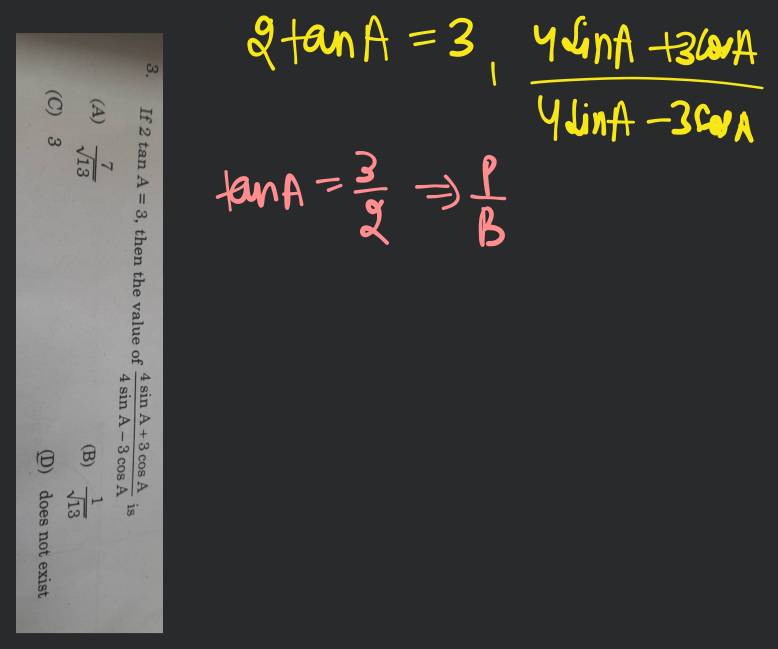 2 tan A = 3, 4 sin A + 3 cos A / 4 sin A - 3 cos A
tan A = 3/2 ⇒ P/B
3. If 2 tan A = 3, then the value of (4 sin A + 3 cos A)/(4 sin A – 3 cos A) is
(A) 7/√13 (B) 1/√13
(C) 3 (D) does not exist